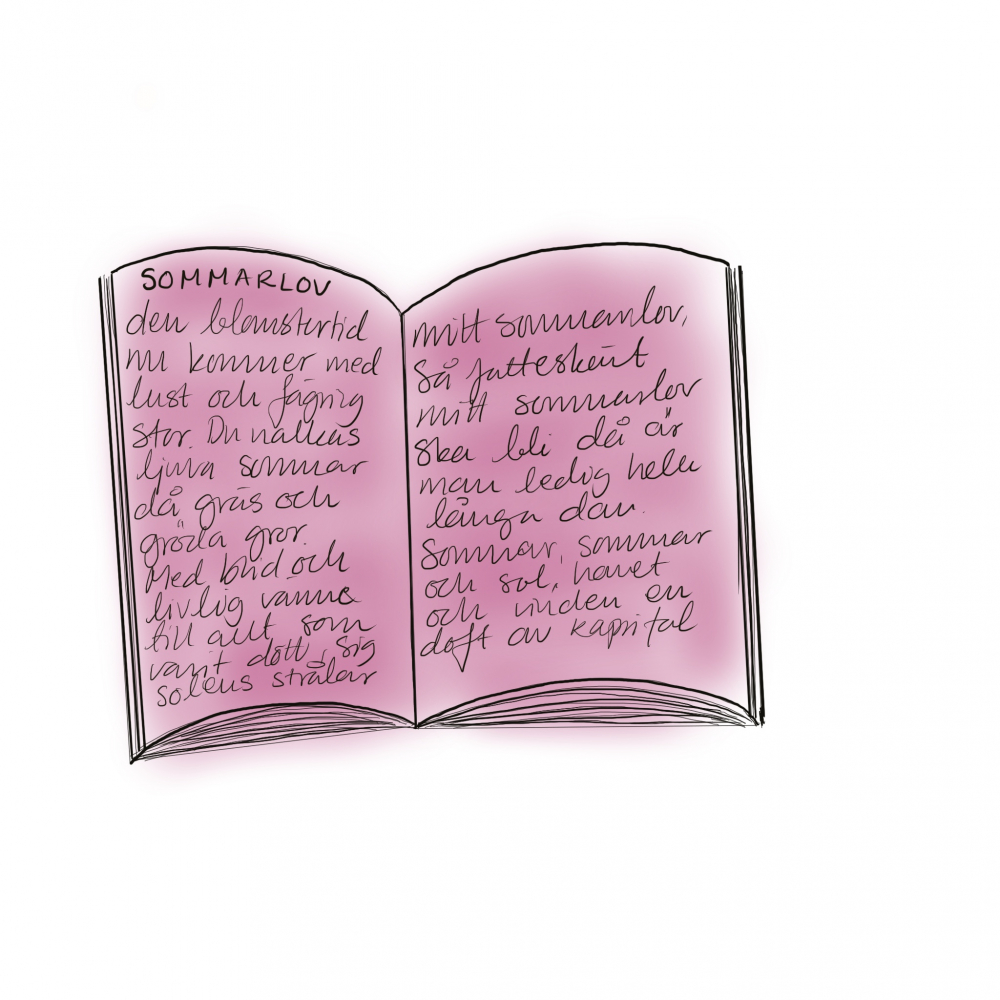 SOMMARLOV
den blomstertid
nu kommer med
lust och fägring
stor. Du nalkas
ljuva sommar
då gräs och
gröda gror.
Med blid och
livlig värme
till allt som
varit dött, sig
solens strålar
mitt sommarlov,
så jutteskönt
mitt sommarlov
ska bli då är
man ledig hela
långa dan.
Sommar, sommar
och sol, havet
och vinden en
doft av kapital